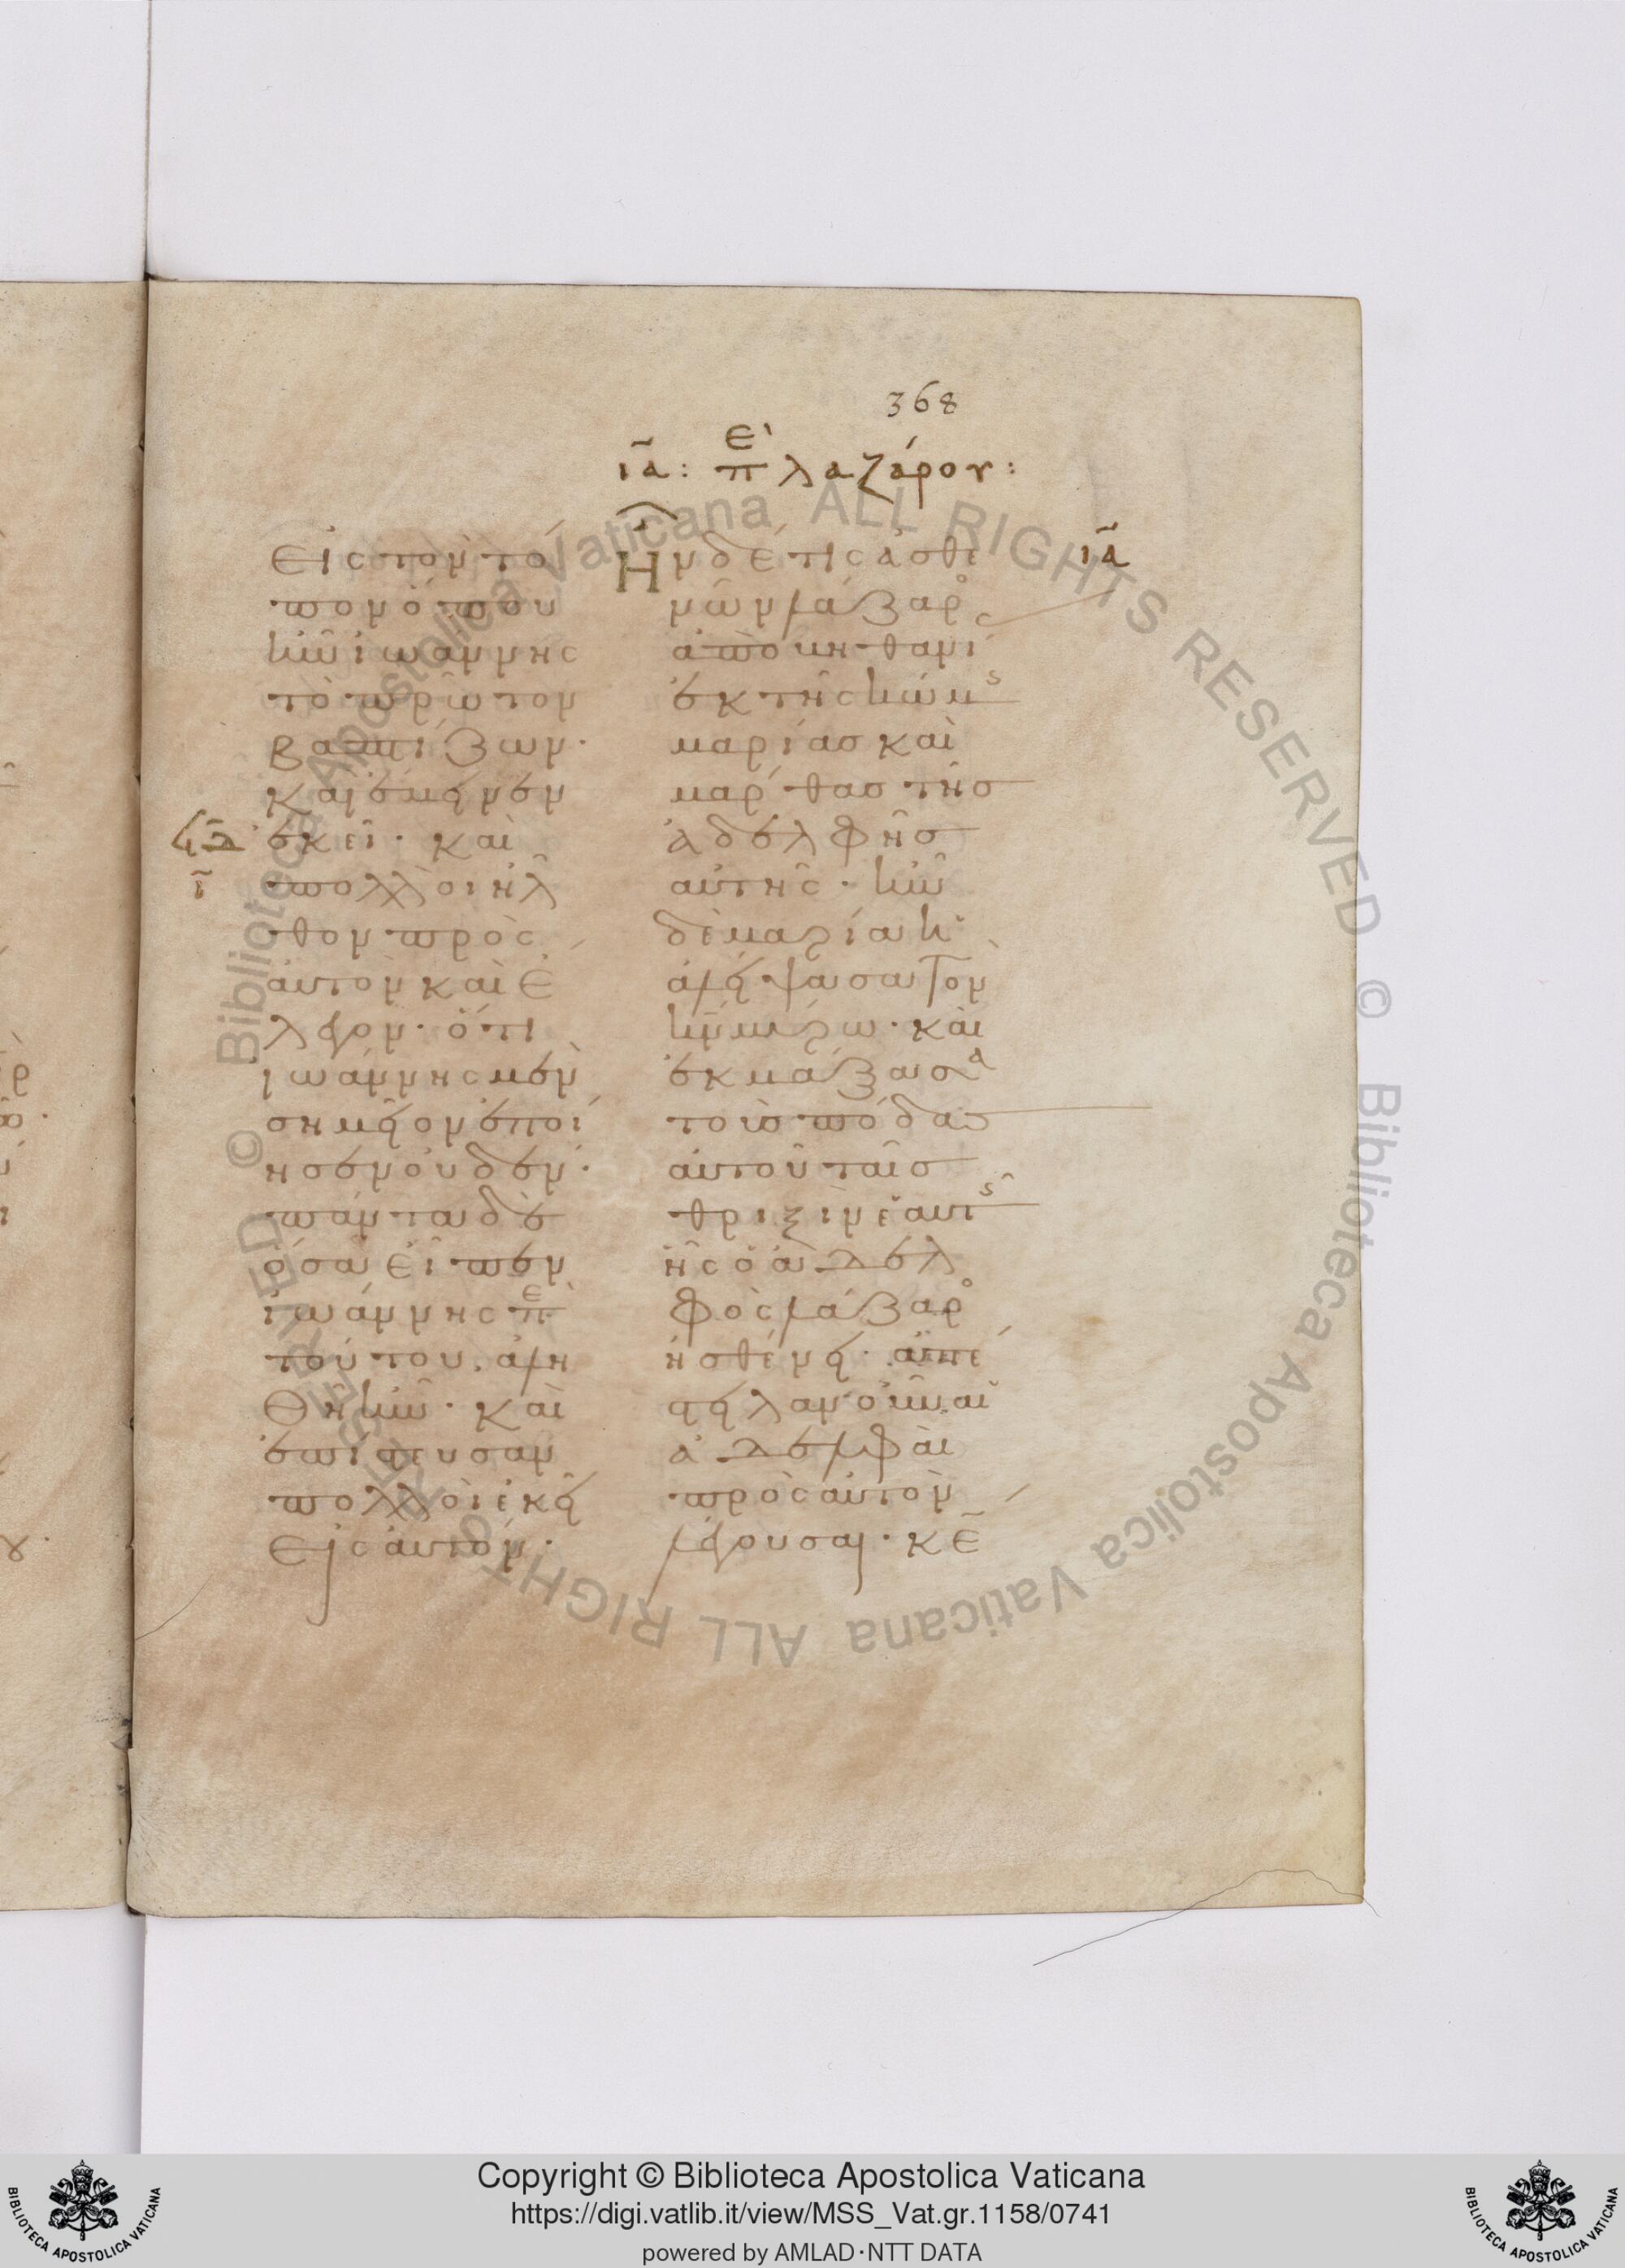 368
ια: περὶ λαζάρου:
εἰς τὸν τό
πον ὅπου
ἦν ἰωάννης
τὸ πρῶτον
βαπτίζων·
καὶ ἔμεινεν
ἐκεῖ· καὶ
ι
πολλοὶ ἦλ
θον πρὸς
αὐτὸν καὶ ἔ
λεγον· ὅτι
ἰωάννης μὲν
σημεῖον ἐποί
ησεν οὐδέν·
πάντα δὲ
ὅσα εἶπεν
ἰωάννης πε
τούτου, ἀλη
θῆ ἦν· καὶ
ἐπίστευσαν
πολλοὶ ἐκεῖ
εἰς αὐτόν·
Ην δέ τις ἀσθε
ια
νῶν λάζαρο
ἀπὸ βηθανί
ἐκ τῆς κώμης
μαρίας καὶ
μάρθας τῆς
ἀδελφῆς
αὐτῆς· ἦν
δὲ μαρία ἡ
ἀλείψασα τὸν
κν μύρω· καὶ
ἐκμάξασα
τοὺς πόδας
αὐτοῦ ταῖς
θριξὶν ἑαυτῆς
ἧς ὁ ἀδελ
φὸς λάζαρο
ἠσθένει· ἀπέ
στειλαν οὖν αἱ
ἀδελφαὶ
πρὸς αὐτὸν
λέγουσαι· κε
Copyright © Biblioteca Apostolica Vaticana
https://digi.vatlib.it/view/MSS_Vat.gr.1158/0741
powered by AMLAD·NTT DATA